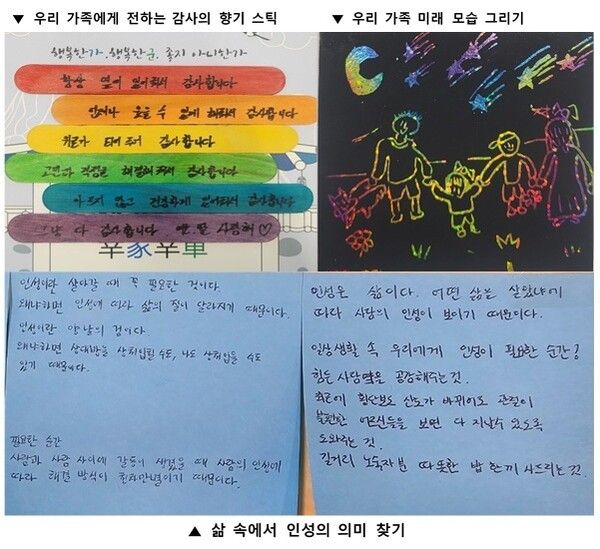 ▼ 우리 가족에게 전하는 감사의 향기 스틱
▼ 우리 가족 미래 모습 그리기
행복한가.행복한군. 좋지 아니한가
항상 옆에 있어줘서 감사합니다
언제나 웃을 수 있게 해줘서 감사합니다
위로가 되어 주어 감사합니다
고민과 걱정을 해결해줘서 감사합니다
아프지 않고 건강하게 있어줘서 감사합니다
다 감사합니다 사랑해♡
인성이란 살아갈 때 꼭 필요한 것이다.
왜냐하면 인성에 따라 삶의 질이 달라지기 때문이다.
인성이란 양날의 검이다
왜냐하면 상대방을 상처입힐 수도, 나도 상처입을 수도
있기 때문이다.
필요한 순간
사람과 사람 사이에 갈등이 생겼을 때 사람의 인성에
따라 해결 방식이 천차만별이기 때문이다.
인성은 삶이다. 어떤 삶을 살았냐에
따라 사람의 인성이 보이기 때문이다.
일상생활 속 우리에게 인성이 필요한 순간!
힘든 사람을 공감해주는 것.
횡단보도 신호가 바뀌어도 관절이
불편한 어르신들을 보면 다 지날수 있도록
도와주는 것.
길거리 노숙자분 따뜻한 밥 한끼 사드리는 것.
▲ 삶 속에서 인성의 의미 찾기